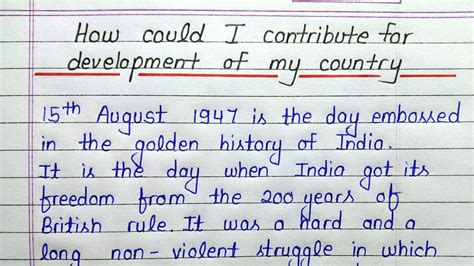 How could I contribute for
development of my country
15th August 1947 is the day embossed
in the golden history of India.
It is the day when India got its
freedom from the 200 years of
British rule. It was a hard and a
long non-violent struggle in which